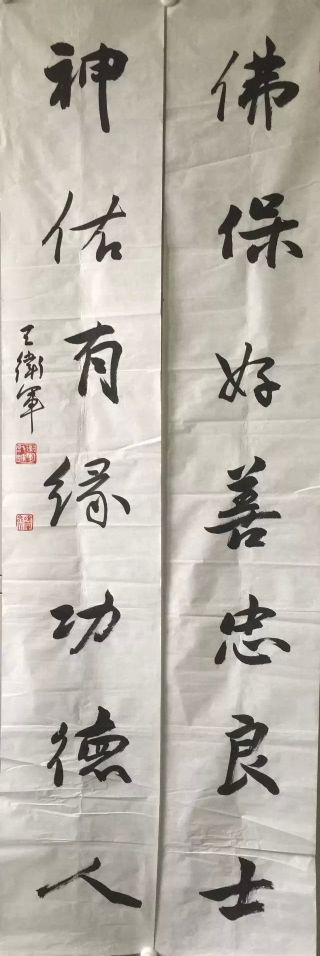 佛保好善忠良士
神佑有缘功德人
王衛軍